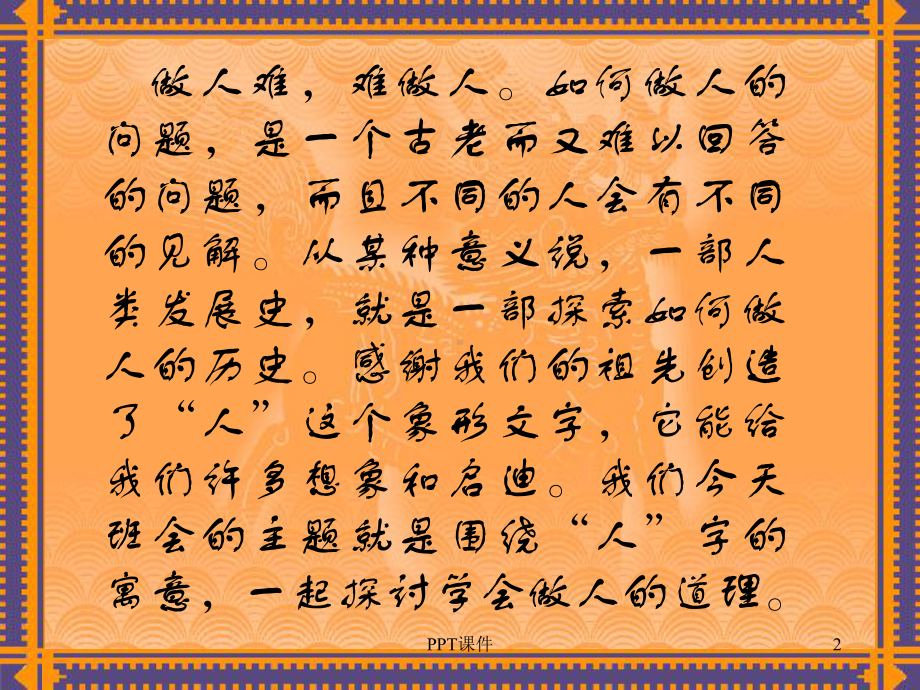 做人难，难做人。如何做人的
问题，是一个古老而又难以回答
的问题，而且不同的人会有不同
的见解。从某种意义说，一部人
类发展史，就是一部探索如何做
人的历史。感谢我们的祖先创造
了“人”这个象形文字，它能给
我们许多想象和启迪。我们今天
班会的主题就是围绕“人”字的
寓意，一起探讨学会做人的道理。
PPT课件
2